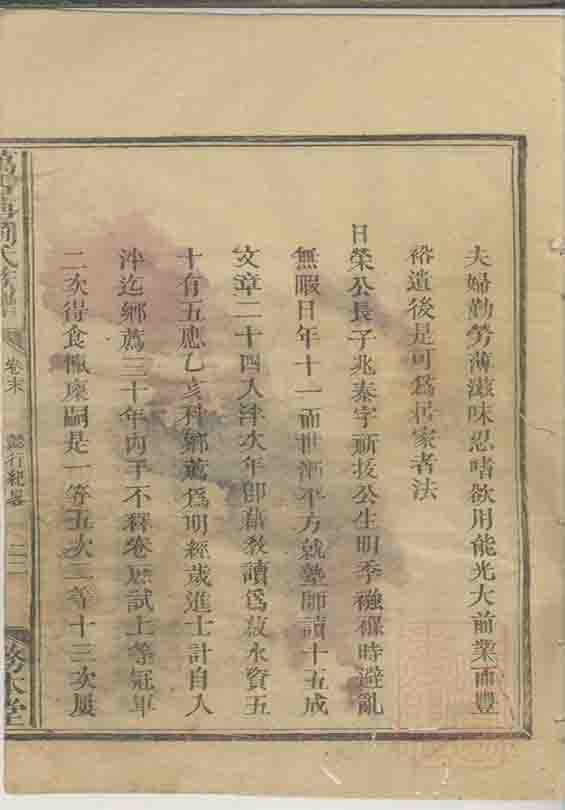 夫婦勤勞薄滋味忍嗜欲用能光大前業而豐
裕遺後是可為居家者法
日榮公長子兆泰字頑拔公生明季襁褓時避亂
無暇日年十一而世漸平方就塾師讀十五成
文章二十四入泮次年卽藉教讀為菽水資五
十有五應乙亥科鄉薦為明經歲進士計自入
泮迄鄉薦三十年內手不釋卷應試上等冠軍
二次得食餼廩嗣是一等五次二等十三次屢
氏族譜 卷末 懿行紀畧 務本堂